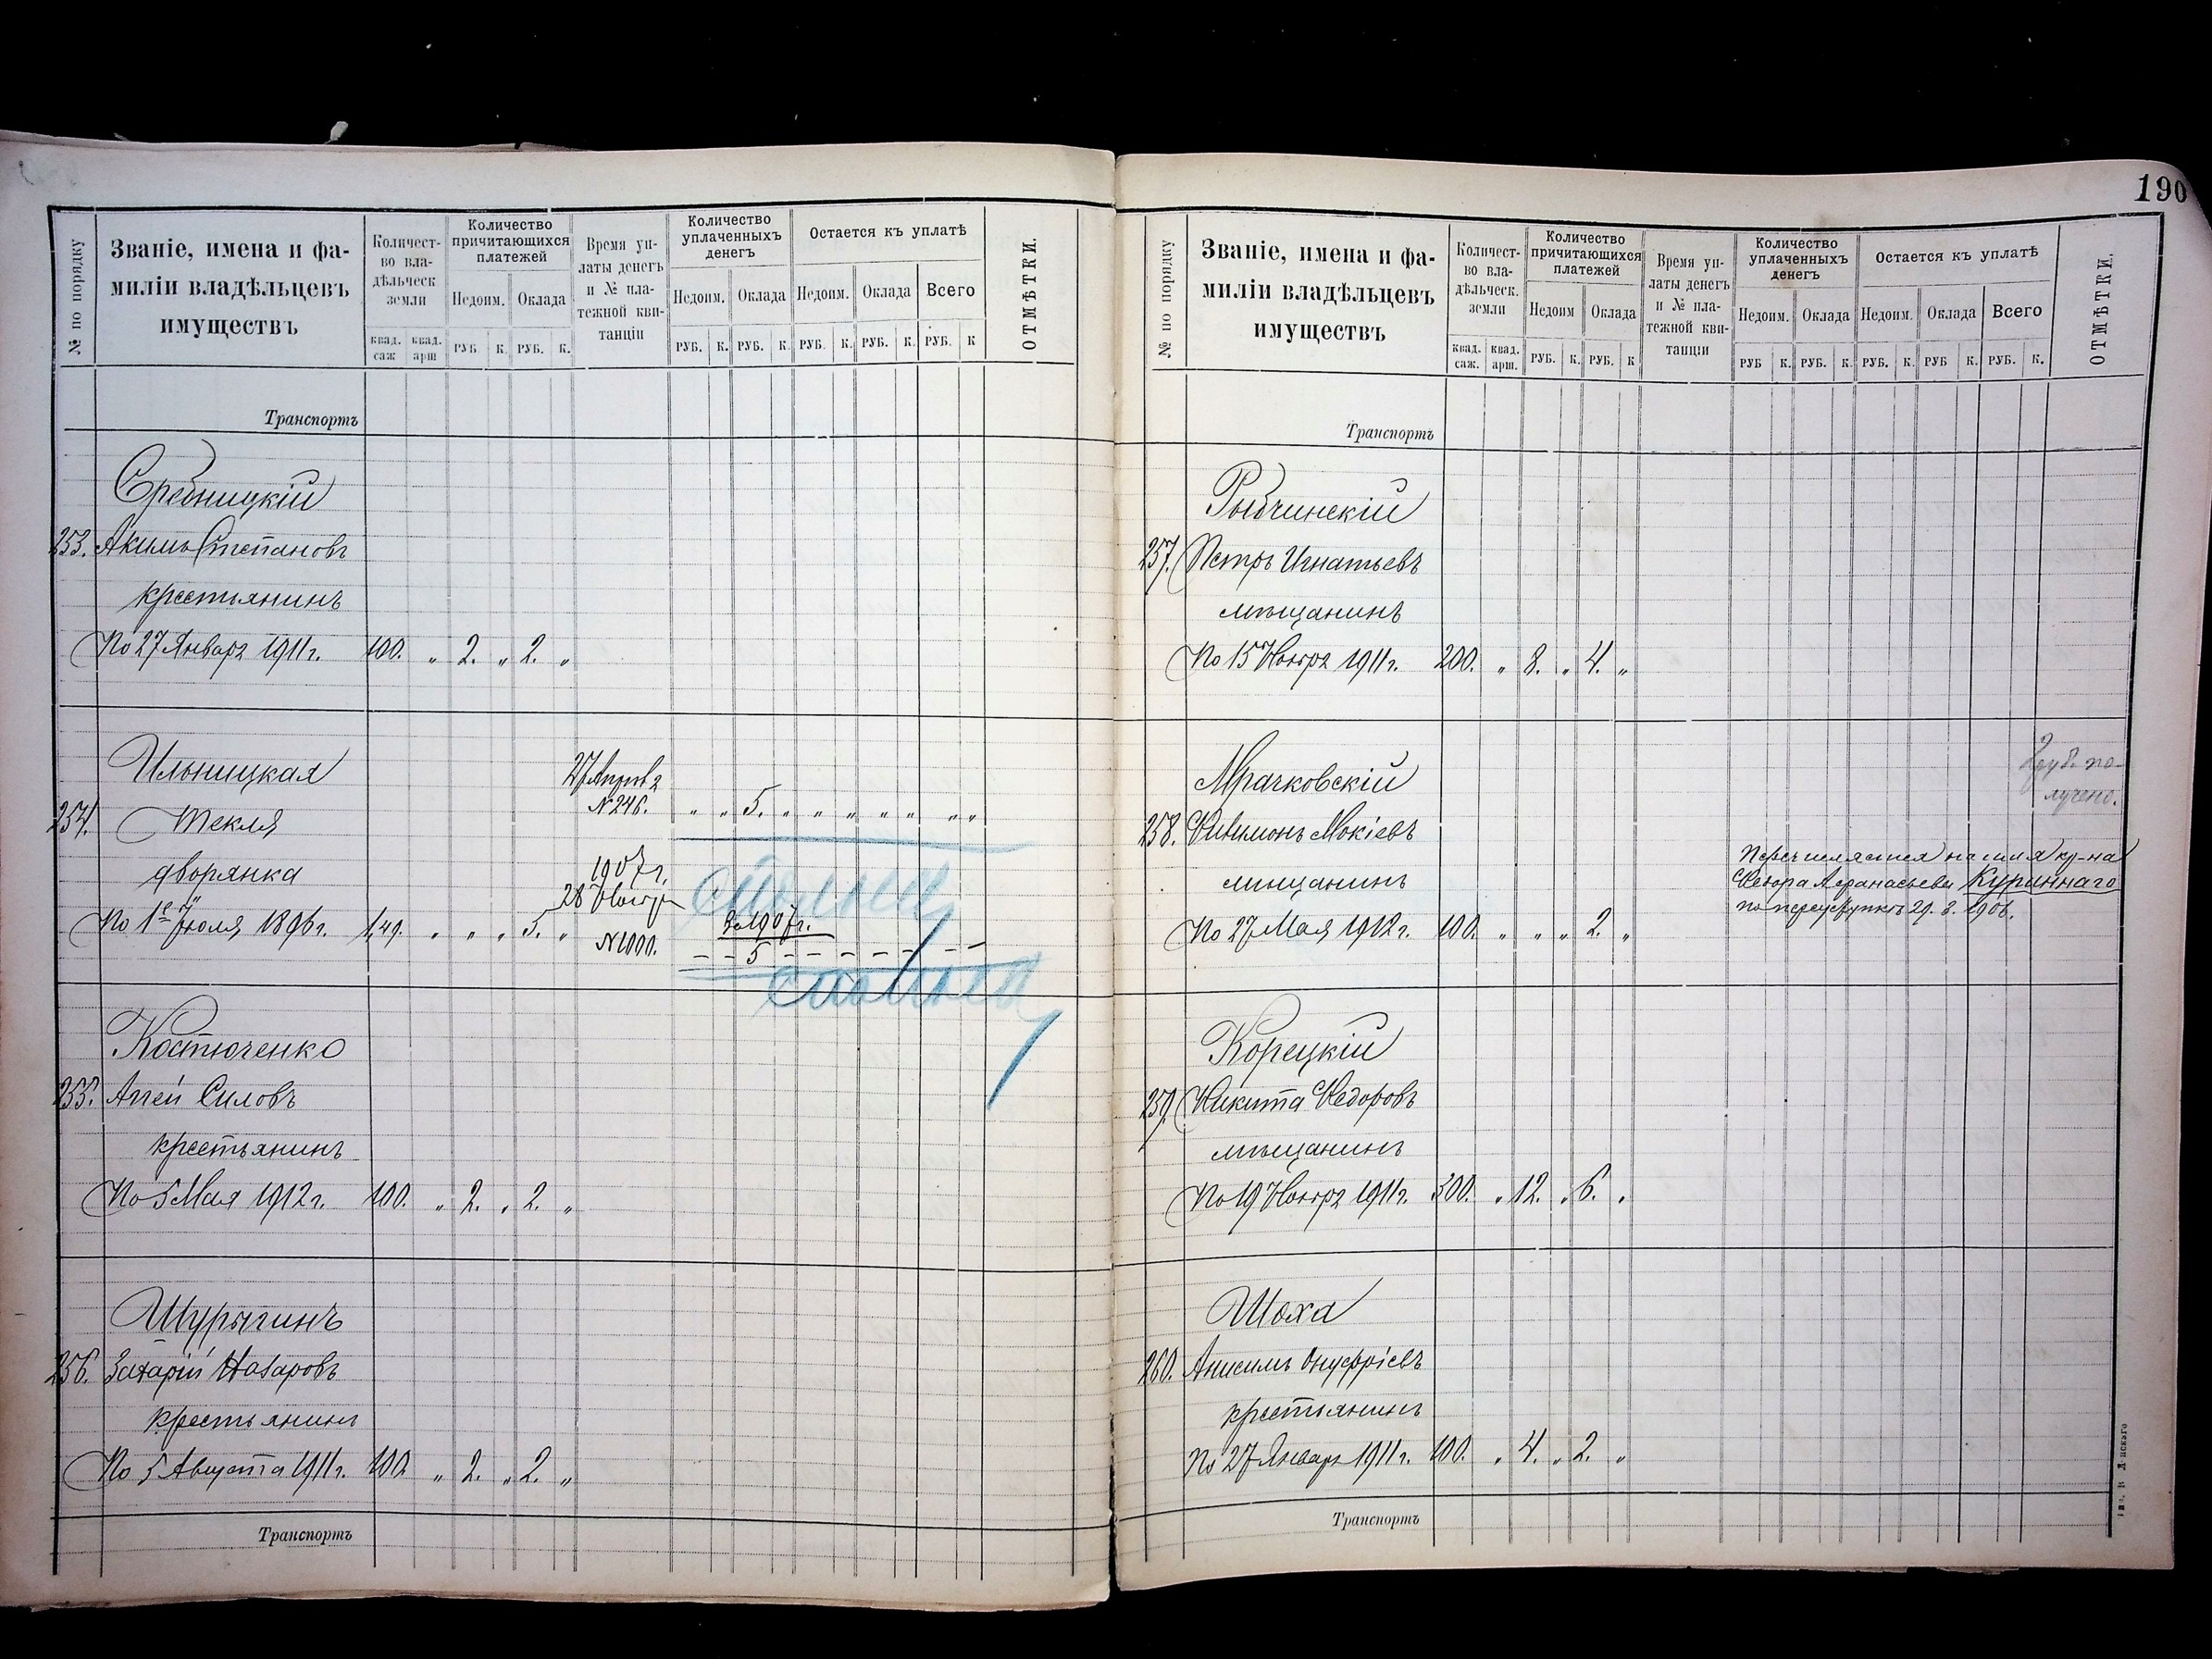 190
№ по порядку
Званіе, имена и фа-
миліи владѣльцевъ
имуществъ
Количест-
во вла-
дѣльческ.
земли
квад. саж. квад. арш.
Количество
причитающихся
платежей
Недоим. Оклада
РУБ. К. РУБ. К.
Время уп-
латы денегъ
и № пла-
тежной кви-
танціи
Количество
уплаченныхъ
денегъ
Недоим. Оклада
РУБ. К. РУБ. К.
Остается къ уплатѣ
Недоим. Оклада Всего
РУБ. К. РУБ. К. РУБ. К
ОТМѢТКИ.
Транспортъ
Сребницкій
253. Акимъ Степановъ
крестьянинъ
По 27 Января 1911 г. 100. „ 2. „ 2. „
Ильницкая
27 Апрѣля
№ 246. „ „ 5. „ „ „ „ „ „ „ „
254. Текля
дворянка
1907 г.
28 Ноября
№ 1000.
По 1е Іюля 1896 г. 149. „ „ „ 5. „
За 1907 г.
– – 5 – – – – – – – –
Костюченко
255. Аггей Силовъ
крестьянинъ
По 5 Мая 1912 г. 100. „ 2. „ 2. „
Шурыгинъ
256. Захарій Назаровъ
крестьянинъ
По 5 Августа 1911 г. 100. „ 2. „ 2. „
Транспортъ
№ по порядку
Званіе, имена и фа-
миліи владѣльцевъ
имуществъ
Количест-
во вла-
дѣльческ.
земли
квад. саж. квад. арш.
Количество
причитающихся
платежей
Недоим Оклада
РУБ. К. РУБ. К
Время уп-
латы денегъ
и № пла-
тежной кви-
танціи
Количество
уплаченныхъ
денегъ
Недоим. Оклада
РУБ К. РУБ. К.
Остается къ уплатѣ
Недоим. Оклада Всего
РУБ. К. РУБ К. РУБ. К.
ОТМѢТКИ.
Транспортъ
Рыбчинскій
257. Петръ Игнатьевъ
мѣщанинъ
По 15 Ноября 1911 г. 200. „ 8. „ 4. „
Мрачковскій
2 руб. по-
лучено.
258. Филимонъ Мокіевъ
мѣщанинъ
Перечисляется на имя кр-на
Федора Афанасьева Куриннаго
29. 8. 1906.
По 27 Мая 1912 г. 100. „ „ „ 2. „
Корецкій
259. Никита Федоровъ
мѣщанинъ
По 19 Ноября 1911 г. 300. „ 12. „ 6. „
Шоха
260. Анисимъ Онуфріевъ
крестьянинъ
По 27 Января 1911 г. 100. „ 4. „ 2. „
Транспортъ